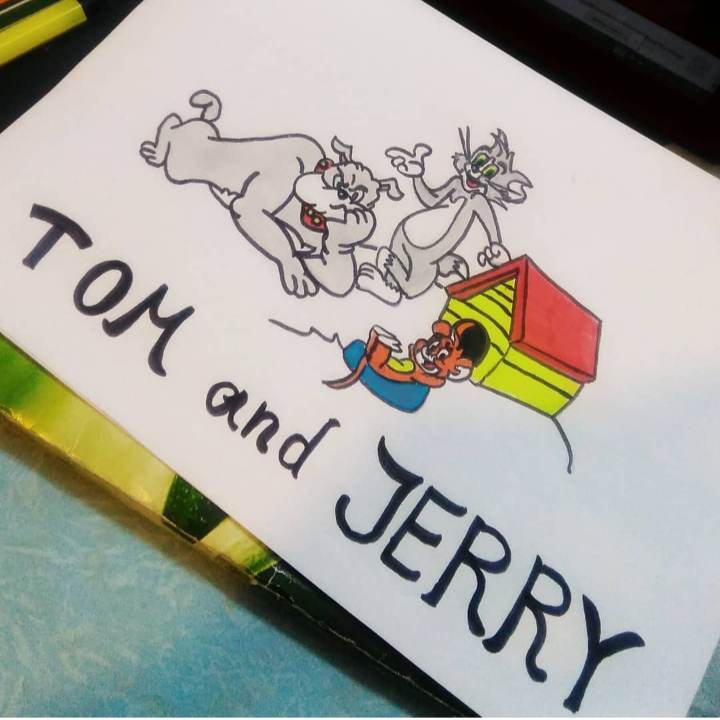 TOM and JERRY